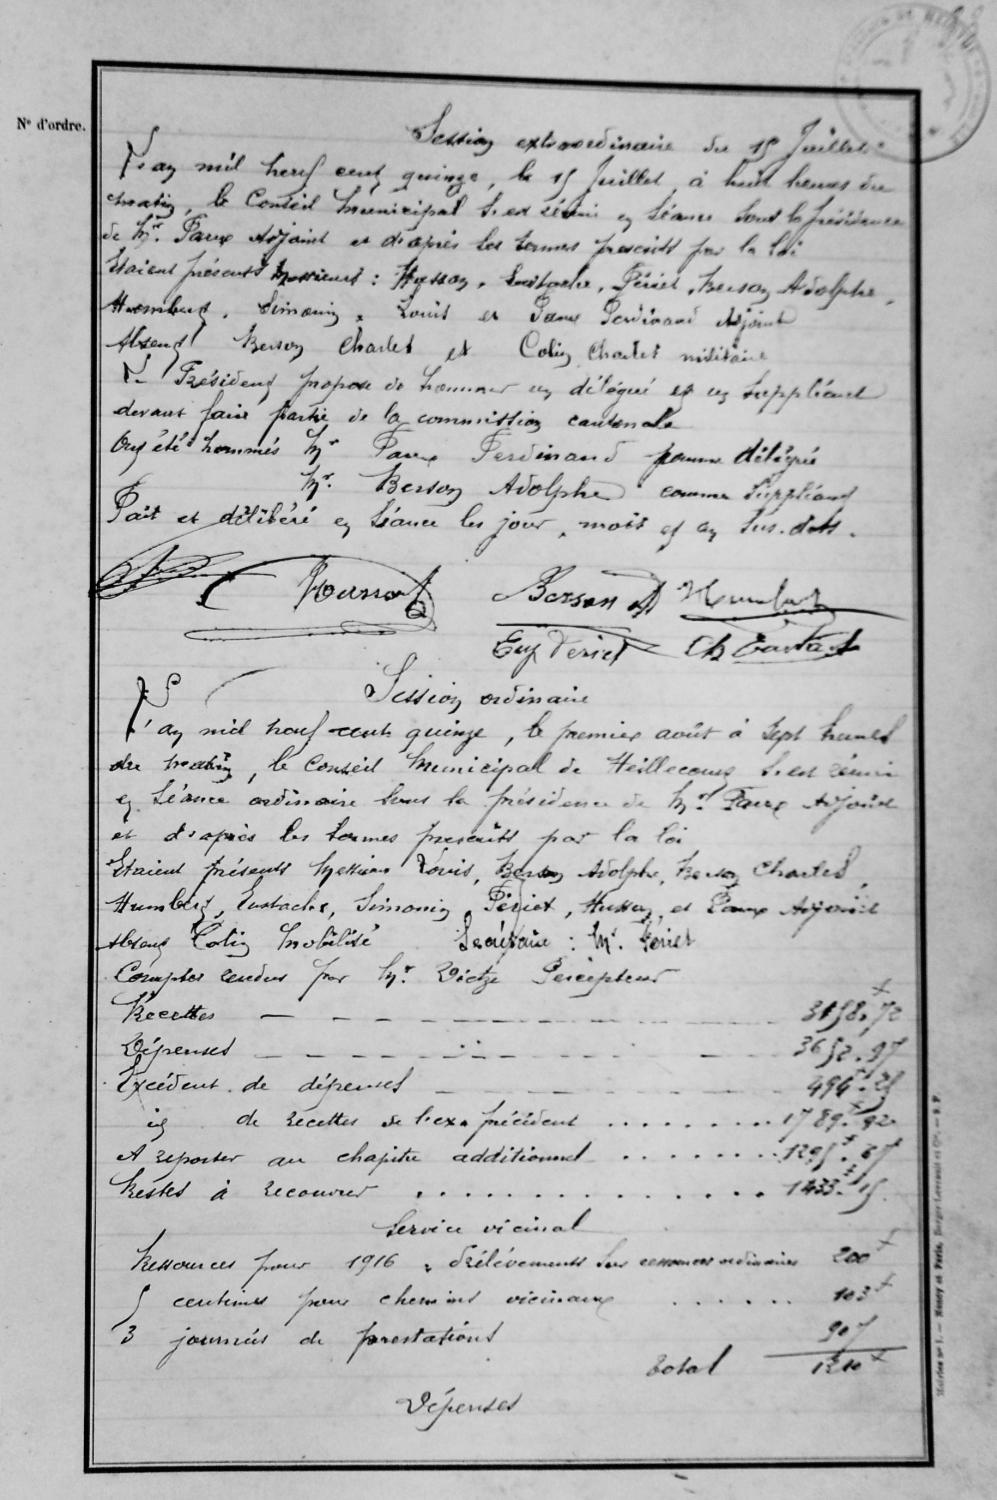 N° d'ordre.
Session extraordinaire du 15 Juillet
L'an mil neuf cent quinze, le 15 Juillet, à huit heures du
matin, le Conseil Municipal s'est réuni en séance sous la présidence
de Mr. Faux Adjoint et d'après les termes prescrits par la loi
Etaient présents Messieurs : Husson, Eustache, Périet, Berson Adolphe,
Humbert, Simonin, Louis et Faux Ferdinand Adjoint
Absent Berson Charles et Colin Charles militaire
Le Président propose de nommer un délégué et un suppléant
devant faire partie de la commission cantonale
Ont été nommés Mr Faux Ferdinand comme délégué
Mr. Berson Adolphe comme suppléant
Fait et délibéré en séance les jour, mois et an sus-dits.
Husson Berson A Humbert
Eug Périet Ch Eustache
Session ordinaire
L'an mil neuf cent quinze, le premier août à sept heures
du matin, le Conseil Municipal de Heillecourt s'est réuni
en séance ordinaire sous la présidence de Mr. Faux Adjoint
et d'après les termes prescrits par la loi
Etaient présents Messieurs Louis, Berson Adolphe, Berson Charles,
Humbert, Eustache, Simonin, Périet, Husson, et Faux Adjoint
Absent Colin mobilisé Secrétaire : Mr. Périet
Comptes rendus par Mr. Percepteur
Recettes 3158.72
Dépenses 3652.97
Excédent de dépenses 494.25
id de recettes de l'ex. précédent 1789.92
A reporter au chapitre additionnel 1295.67
Restes à recouvrer 1433.15
Service vicinal
Ressources pour 1916, Prélèvements sur ressources ordinaires 200
5 centimes pour chemins vicinaux 103
3 journées de prestations 907
Total 1210
Dépenses